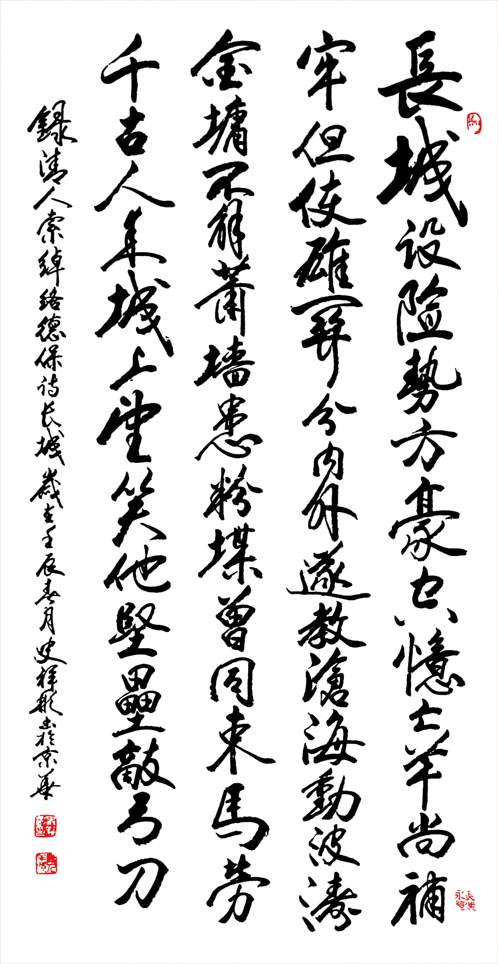 長城設險勢方豪空憶亡羊尚補
牢但使雄關分內外遂教滄海動波濤
金墉不解蕭墻患粉堞曾同束馬勞
千古人來城上望笑他堅壘敵弓刀
錄清人索綽絡德保詩長城歲在壬辰春月史祥彬書於京華